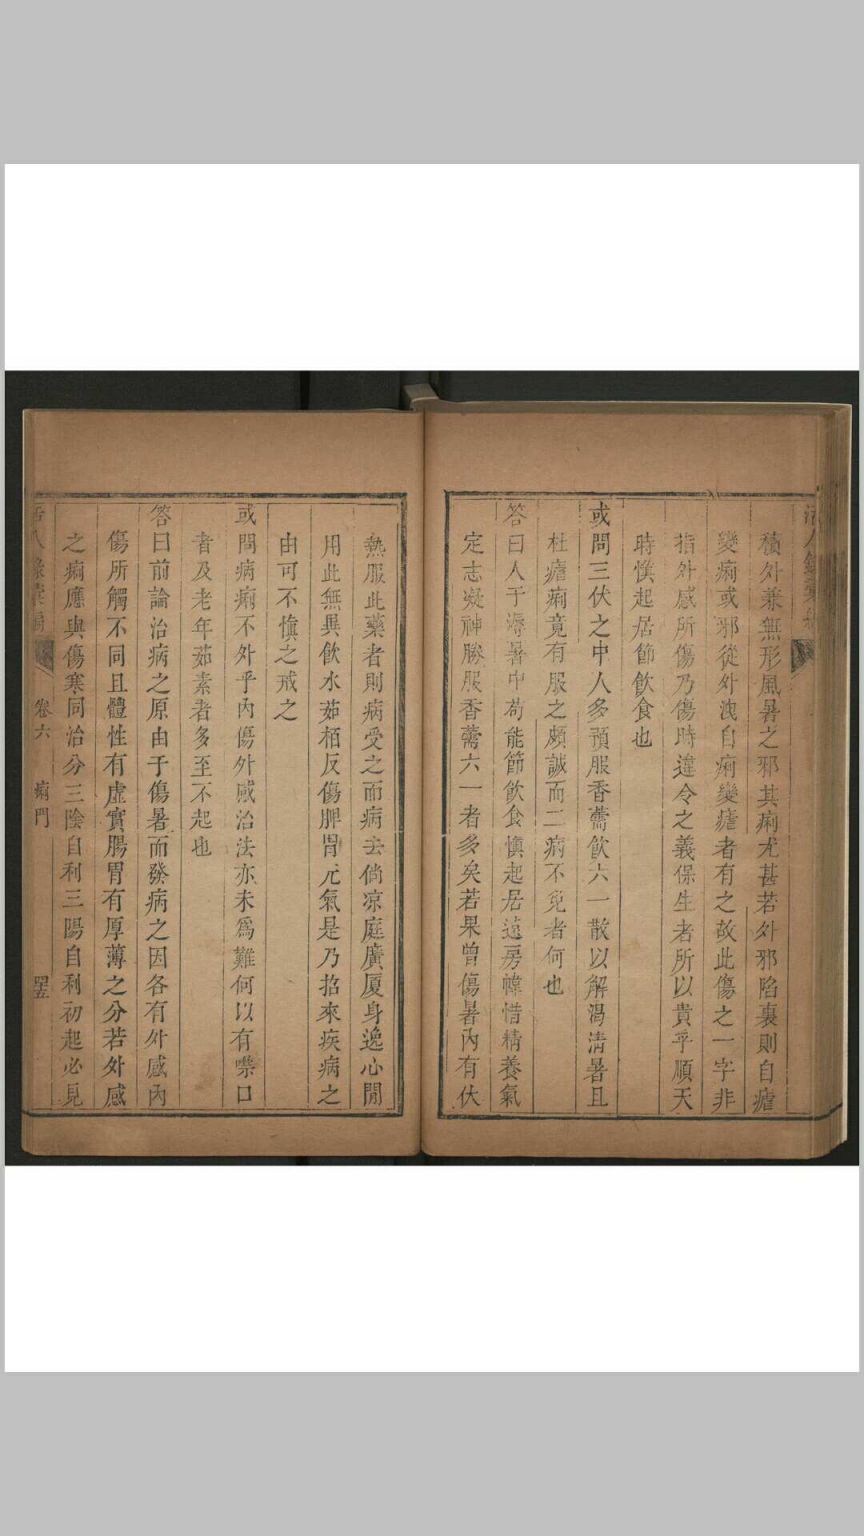 活人錄彙編
積外兼無形風暑之邪其痢尤甚若外邪陷裏則自瘧
變痢或邪從外洩自痢變瘧者有之故此傷之一字非
指外感所傷乃傷時違令之義保生者所以貴乎順天
時慎起居節飲食也
或問三伏之中人多預服香薷飲六一散以解渴清暑且
杜瘧痢竟有服之頗誠而二病不免者何也
答曰人于溽暑中苟能節飲食慎起居遠房幃惜精養氣
定志凝神勝服香薷六一者多矣若果曾傷暑內有伏
熱服此藥者則病受之而病去倘凉庭廣厦身逸心閒
用此無異飲水茹栢反傷脾胃元氣是乃招來疾病之
由可不慎之戒之
或問病痢不外乎內傷外感治法亦未爲難何以有噤口
者及老年茹素者多至不起也
答曰前論治病之原由于傷暑而發病之因各有外感內
傷所觸不同且體性有虛實腸胃有厚薄之分若外感
之痢應與傷寒同治分三陰自利三陽自利初起必見
活人錄彙編 卷六 痢門 四五